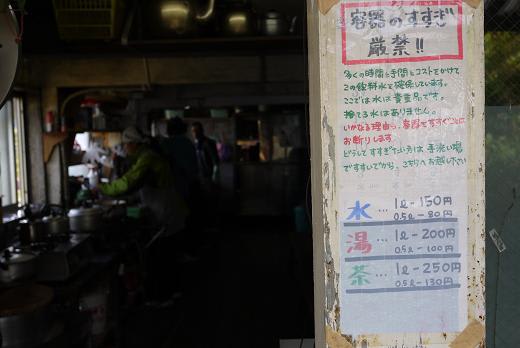 容器のすすぎ
厳禁!!
多くの時間と手間とコストをかけて
この飲料水を確保しています。
ここでは水は貴重品です。
捨てる水はありません。
いかなる理由も、容器をすすぐことは
お断りします。
どうしてすすぎたい方は手洗い場
ですすいでから、こちらへお越し下さい
水…1ℓ-150円
0.5ℓ-80円
湯…1ℓ-200円
0.5ℓ-100円
茶…1ℓ-250円
0.5ℓ-130円